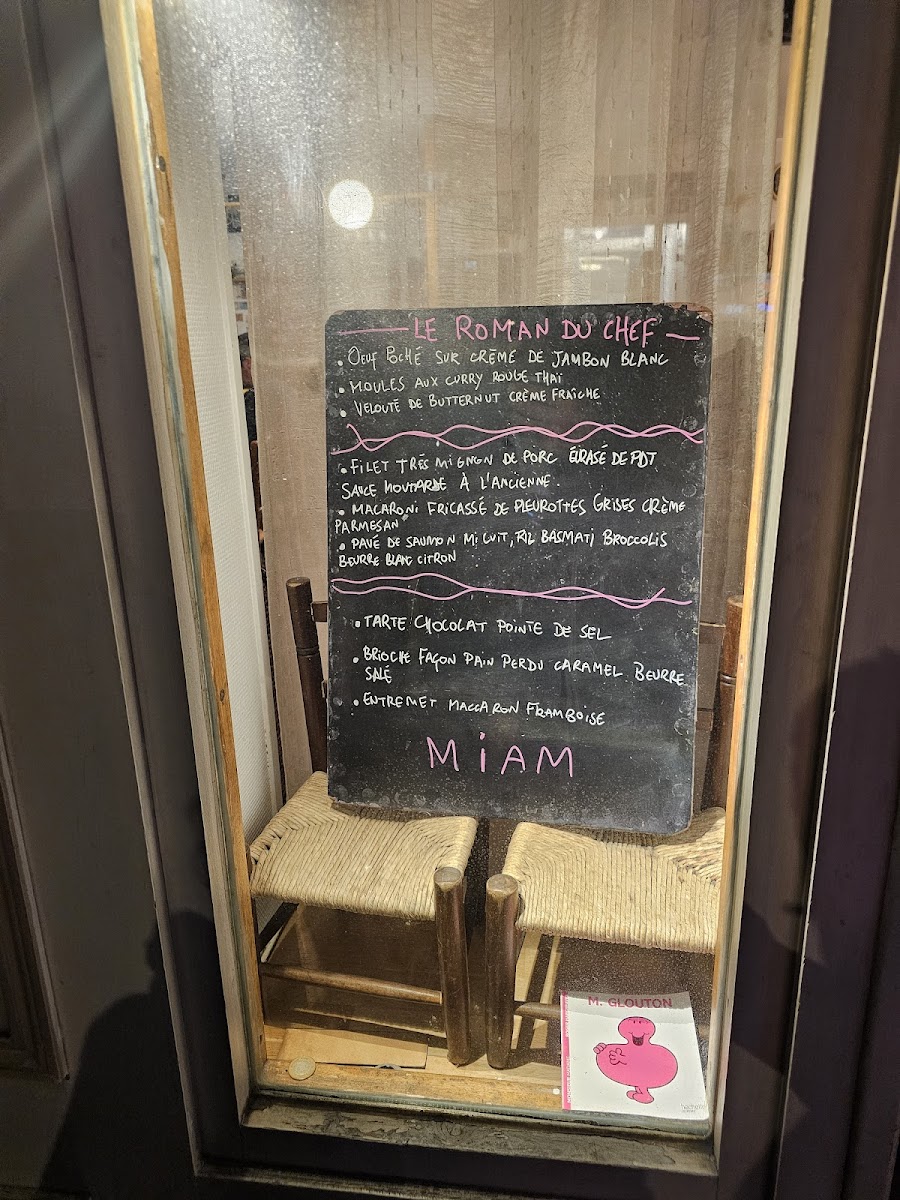 LE ROMAN DU CHEF
• OEUF POCHÉ SUR CRÈME DE JAMBON BLANC
• MOULES AUX CURRY ROUGE THAÏ
• VELOUTÉ DE BUTTERNUT CRÈME FRAÎCHE
• FILET TRÉS MIGNON DE PORC ÉCRASÉ DE PDT
SAUCE MOUTARDE À L'ANCIENNE.
• MACARONI FRICASSÉ DE PLEUROTTES GRISES CRÈME
PARMESAN
• PAVÉ DE SAUMON MI CUIT, RIZ BASMATI BROCCOLIS
BEURRE BLANC CITRON
• TARTE CHOCOLAT POINTE DE SEL
• BRIOCHE FAÇON PAIN PERDU CARAMEL BEURRE
SALÉ
• ENTREMET MACCARON FRAMBOISE
MIAM
M. GLOUTON
hachette